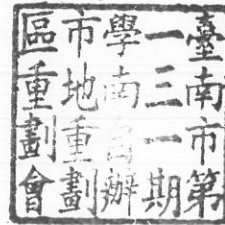 臺南市第
一三一期
學南自辦
市地重劃
區重劃會